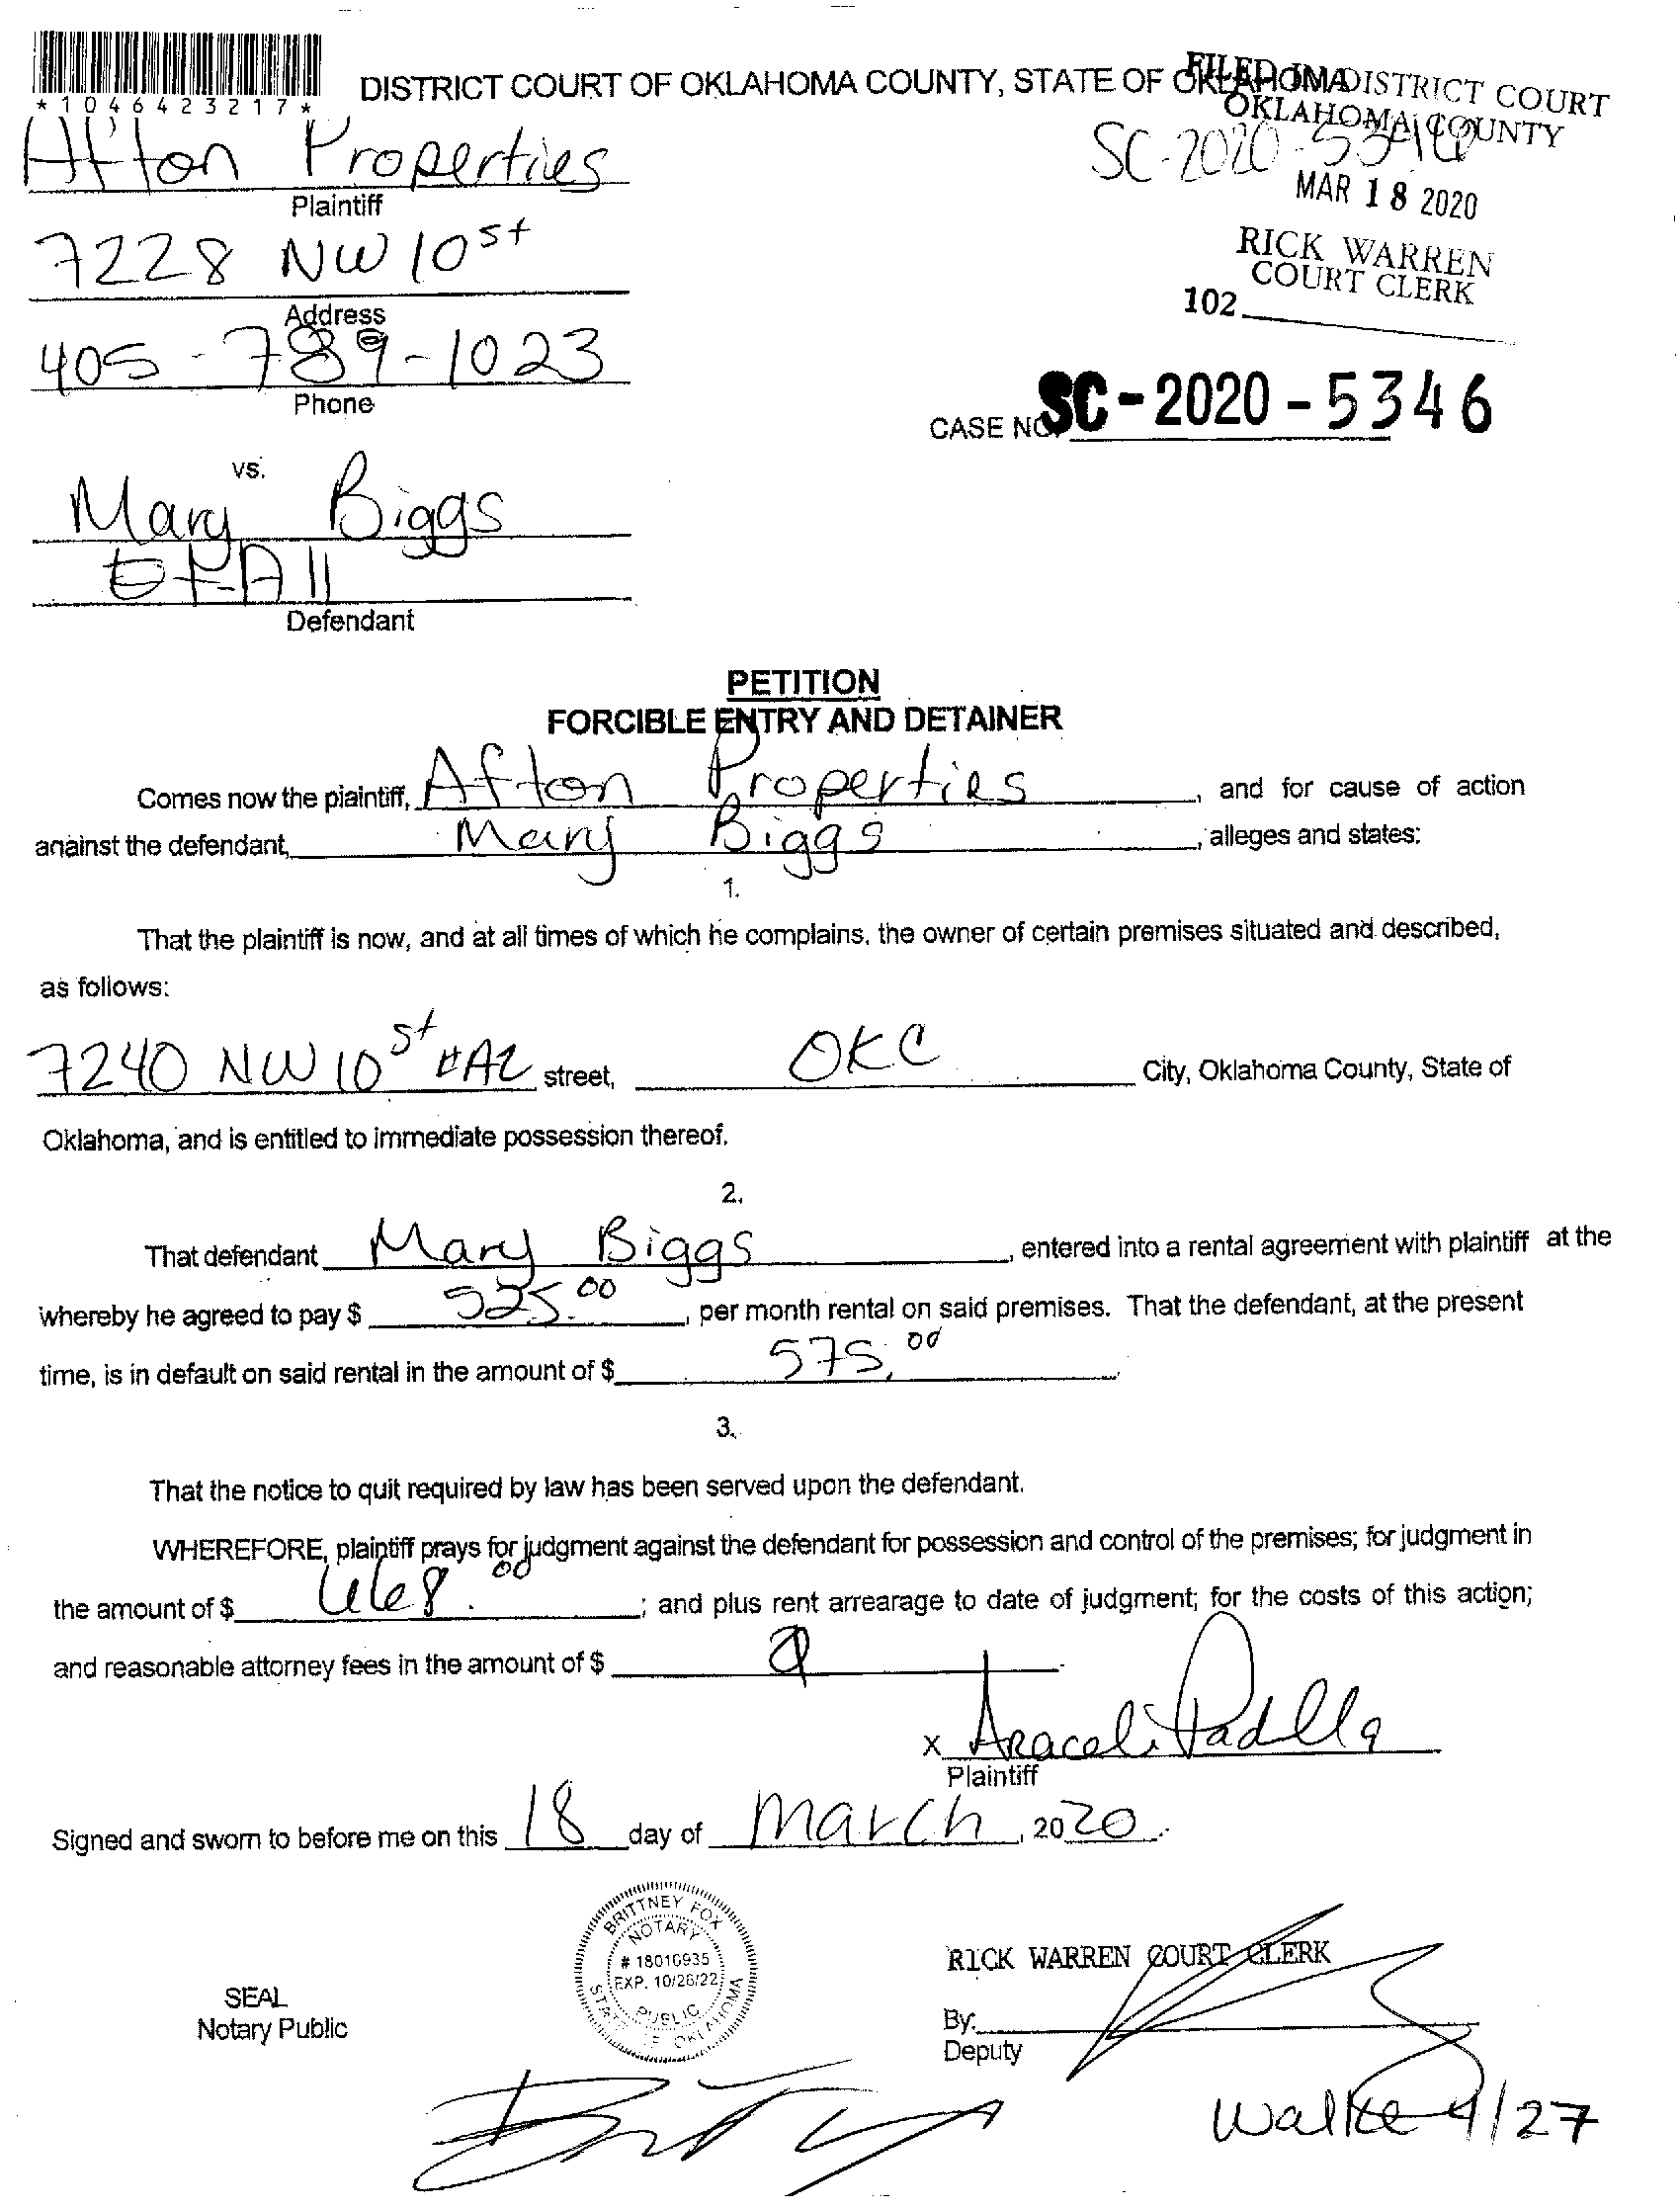 *1046423217*
DISTRICT COURT OF OKLAHOMA COUNTY, STATE OF OKLAHOMA
FILED IN DISTRICT COURT
OKLAHOMA COUNTY
SC-2020-5346
MAR 18 2020
RICK WARREN
COURT CLERK
102
Afton Properties
Plaintiff
7228 NW 10 st
Address
405-789-1023
Phone
CASE NO. SC-2020-5346
vs.
Mary Biggs
Et All
Defendant
PETITION
FORCIBLE ENTRY AND DETAINER
Comes now the plaintiff, Afton Properties, and for cause of action
against the defendant, Mary Biggs, alleges and states:
1.
That the plaintiff is now, and at all times of which he complains, the owner of certain premises situated and described,
as follows:
7240 NW 10 st #A2 street, OKC City, Oklahoma County, State of
Oklahoma, and is entitled to immediate possession thereof.
2.
That defendant Mary Biggs, entered into a rental agreement with plaintiff at the
whereby he agreed to pay $ 525.00, per month rental on said premises. That the defendant, at the present
time, is in default on said rental in the amount of $ 575.00.
3.
That the notice to quit required by law has been served upon the defendant.
WHEREFORE, plaintiff prays for judgment against the defendant for possession and control of the premises; for judgment in
the amount of $ 668.00; and plus rent arrearage to date of judgment; for the costs of this action;
and reasonable attorney fees in the amount of $
x Araceli Padilla
Plaintiff
Signed and sworn to before me on this 18 day of March, 2020.
BRITTNEY FOX
NOTARY
# 18016935
EXP. 10/26/22
PUBLIC
STATE OF OKLAHOMA
SEAL
Notary Public
RICK WARREN COURT CLERK
By:
Deputy
Walke 4/27